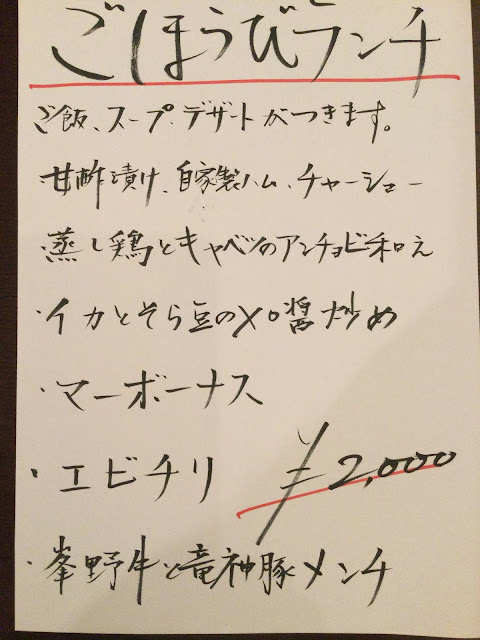 ごほうびランチ
ご飯、スープ、デザートがつきます。
・甘酢漬け、自家製ハム、チャーシュー
・蒸し鶏とキャベツのアンチョビ和え
・イカとそら豆のXO醤炒め
・マーボーナス
・エビチリ ¥2,000
・峯野牛と竜神豚メンチ